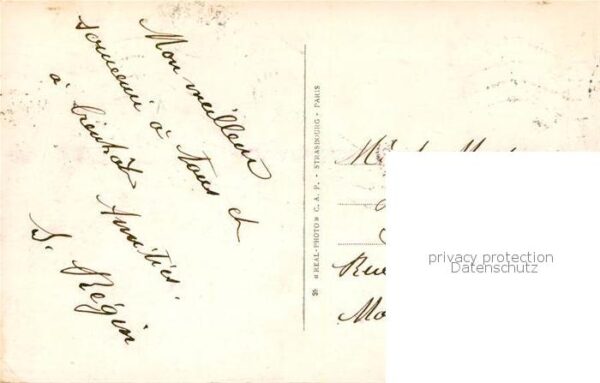 Mon meilleur
souvenir à tous et
à bientôt Amitiés.
S. Régin
"REAL-PHOTO" C. A. P. - STRASBOURG - PARIS
Rue
privacy protection
Datenschutz